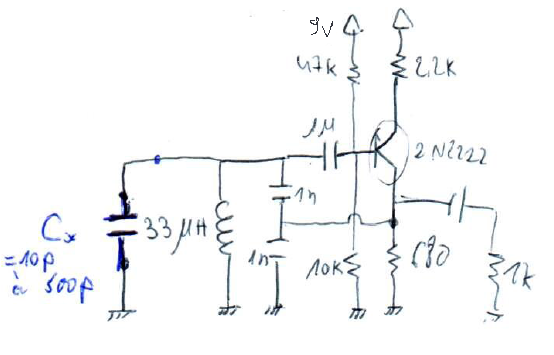 9V
47k
2.2k
1µ
2N2222
1n
Cx
33 µH
=10p
à 500p
1n
10k
680
1k